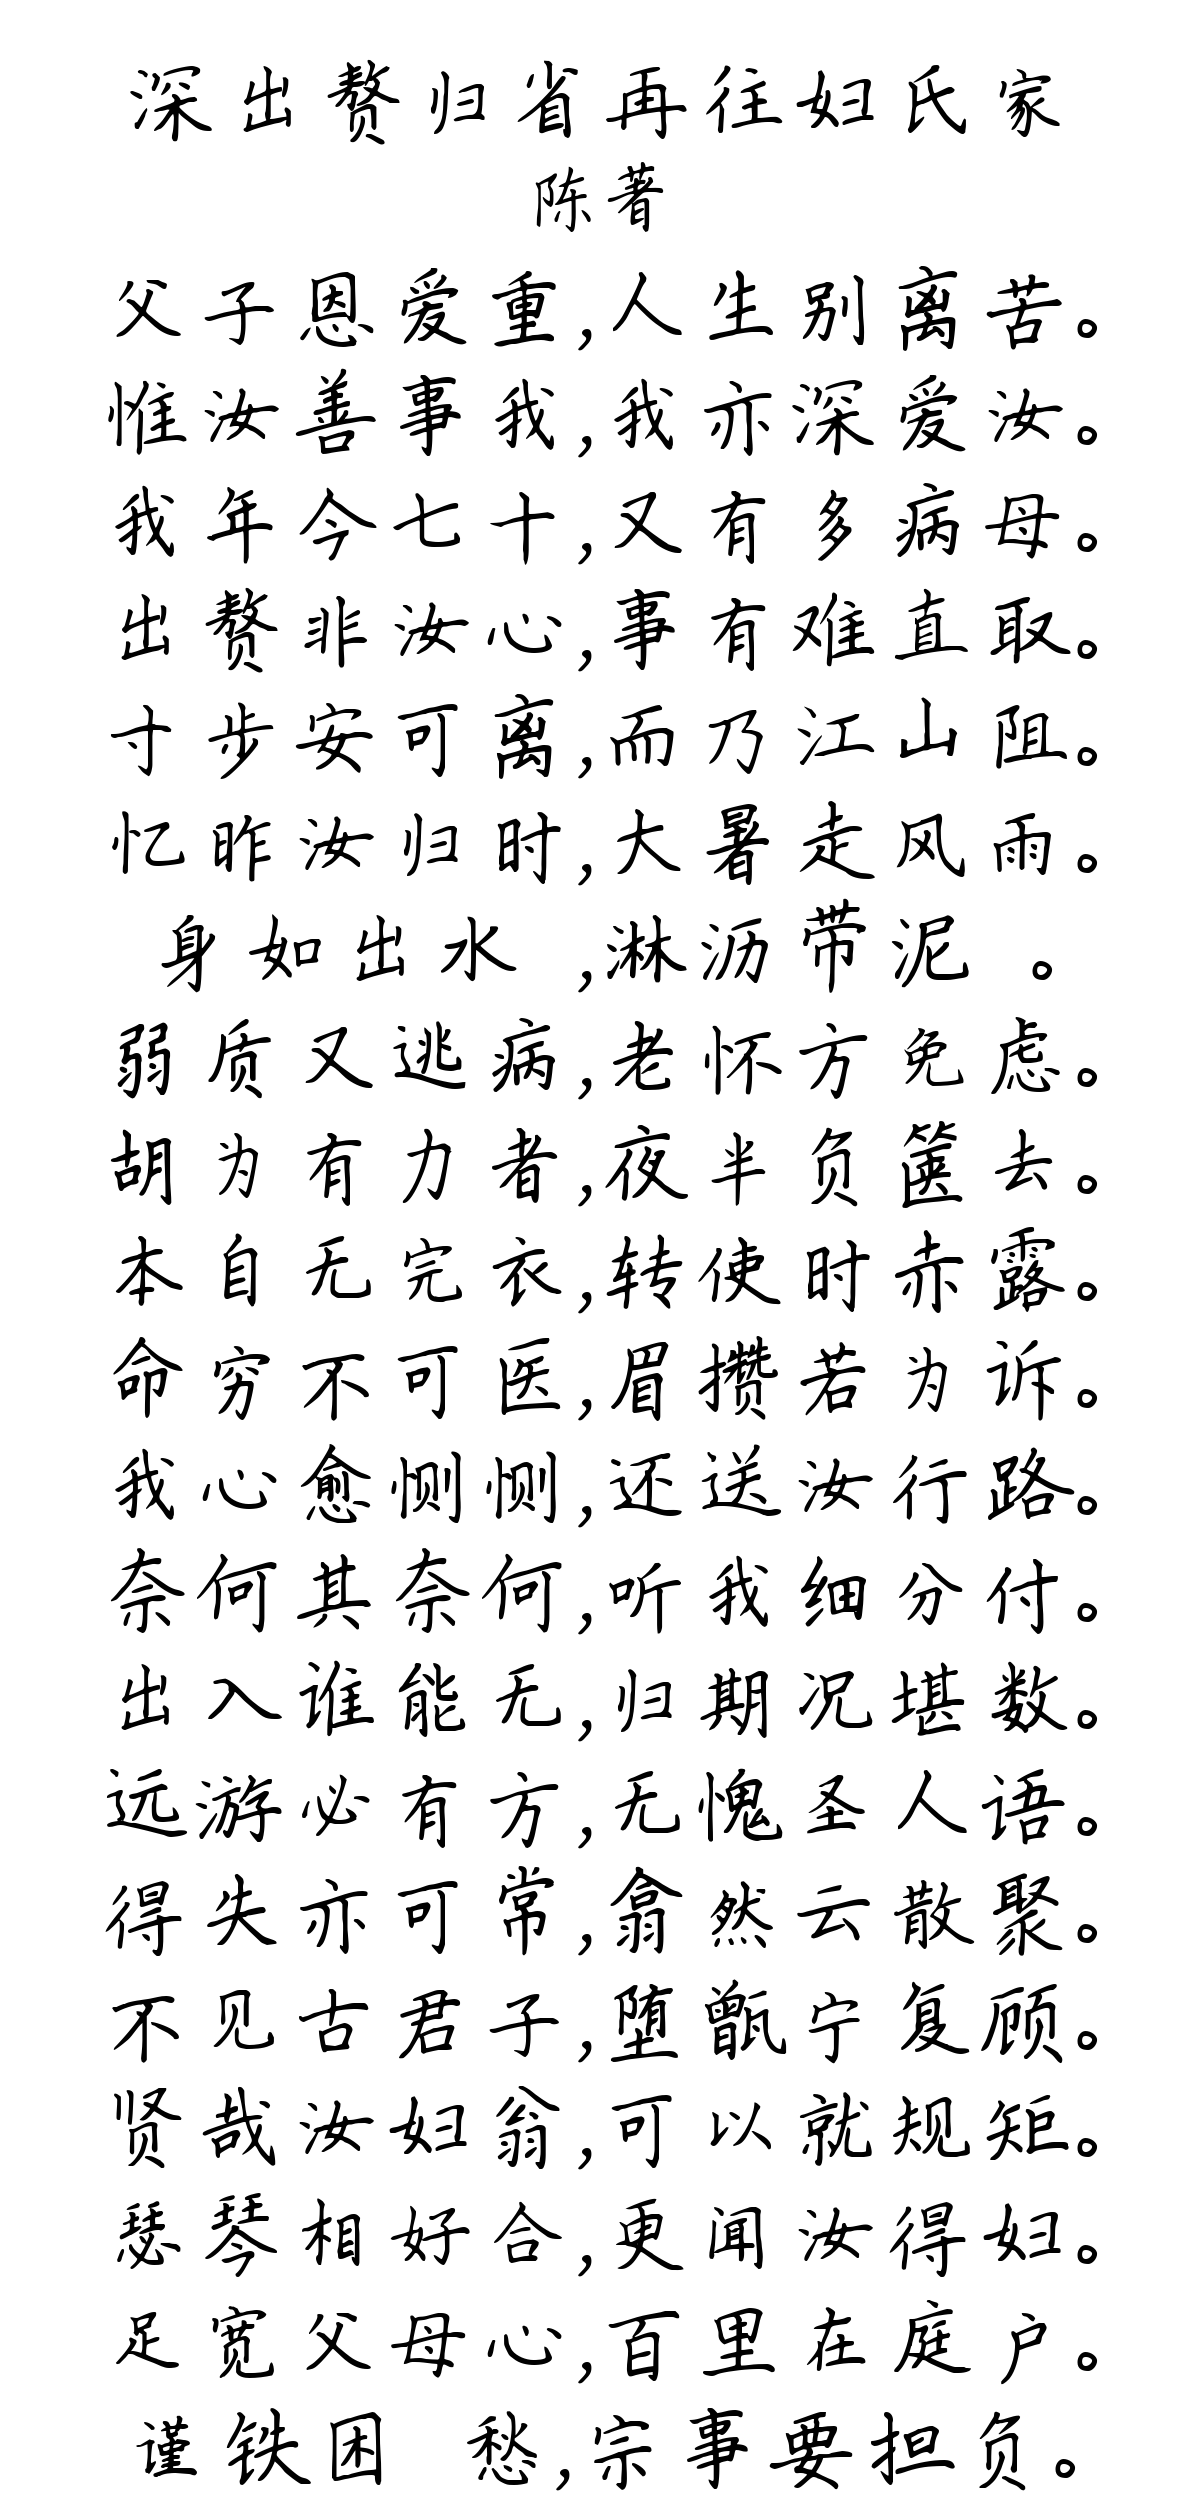 深出赘归省再往妇氏家
陈著
父子恩爱重,人生别离苦。
惟汝善事我,我亦深爱汝。
我年今七十,又有多病母。
出赘非汝心,事有难直取。
寸步安可离,而乃江山阻。
忆昨汝归时,大暑走风雨。
身如出水 ,淋沥带泥 。
弱质又逃病,老怀方兀虑。
胡为有力者,夜半负箧去。
本自无完衣,转使肘亦露。
命穷不可医,眉攒若为诉。
我心愈恻恻,还送汝行路。
奈何其奈何,听我细分付。
出入谁能无,归期况堪数。
远游必有方,无愧圣人语。
得失亦可常,翕然云散聚。
不见古君子,堕甑宁复顾。
贤哉汝妇翁,可以就规矩。
瑟琴相好合,更闻汝得妇。
足宽父母心,百里在庭户。
谨 困 愁,家事要担负。